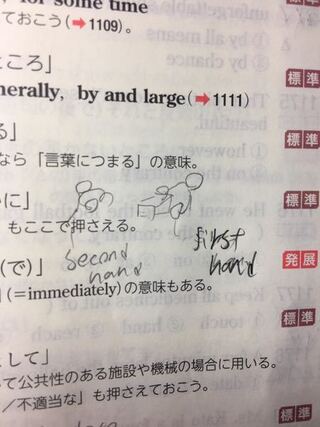 for some time
ておこう(➡1109)。
ところ」
nerally, by and large(➡1111)
標準
標準
る」
なら「言葉につまる」の意味。
標準
に」
標準
もここで押さえる。
second
hand
first
hand
(で)」
発展
(=immediately)の意味もある。
標準
として」
て公共性のある施設や機械の場合に用いる。
/不適当な」も押さえておこう。
標準